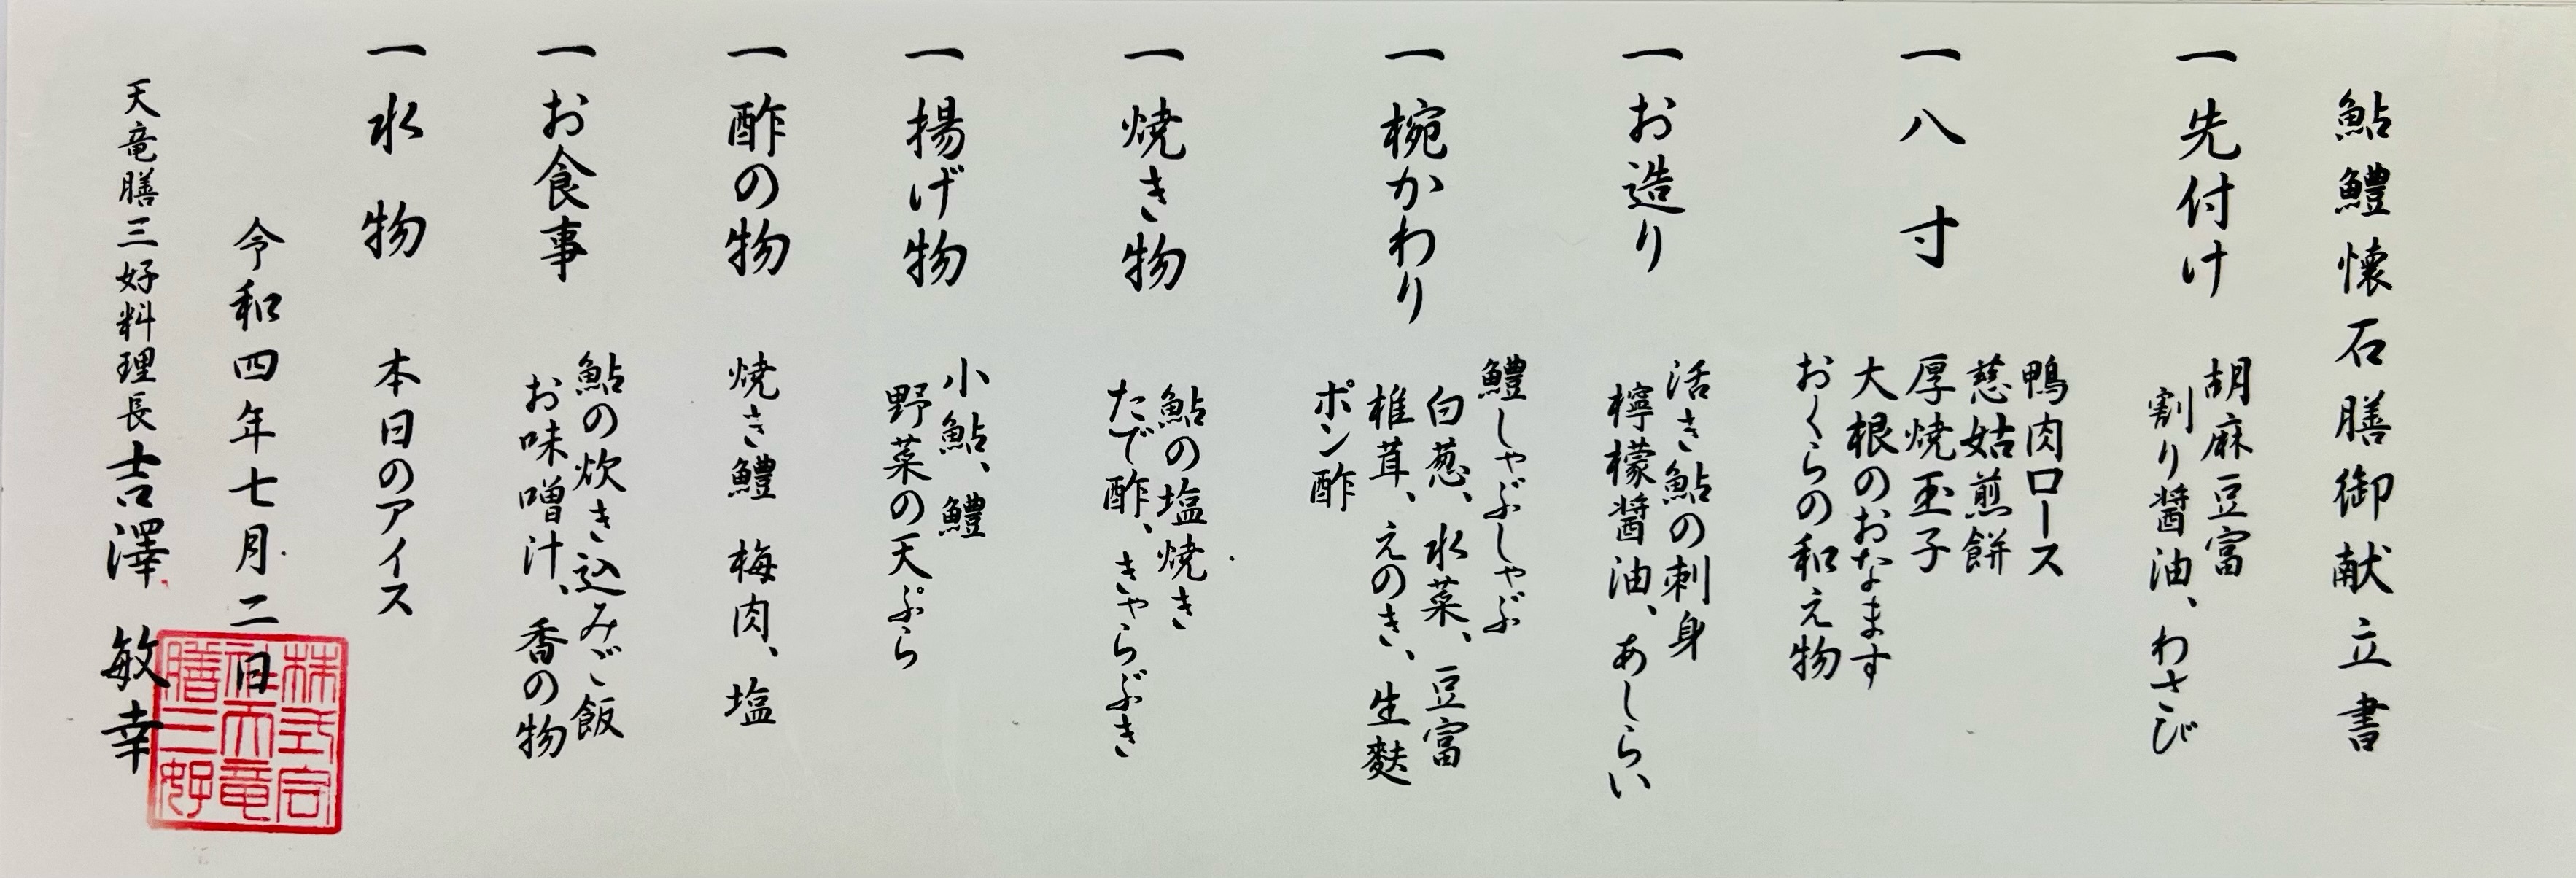 鮎鱧懐石膳御献立書
一 先付け
胡麻豆富
割り醤油、わさび
一 八寸
鴨肉ロース
慈姑煎餅
厚焼玉子
大根のおなます
おくらの和え物
一 お造り
活き鮎の刺身
檸檬醤油、あしらい
一 椀かわり
鱧しゃぶしゃぶ
白葱、水菜、豆富
椎茸、えのき、生麩
ポン酢
一 焼き物
鮎の塩焼き
たで酢、きゃらぶき
一 揚げ物
小鮎、鱧
野菜の天ぷら
一 酢の物
焼き鱧 梅肉、塩
一 お食事
鮎の炊き込みご飯
お味噌汁、香の物
一 水物
本日のアイス
令和四年七月二日
天竜膳三好料理長 吉澤 敏幸
株式会
社天竜
膳三好